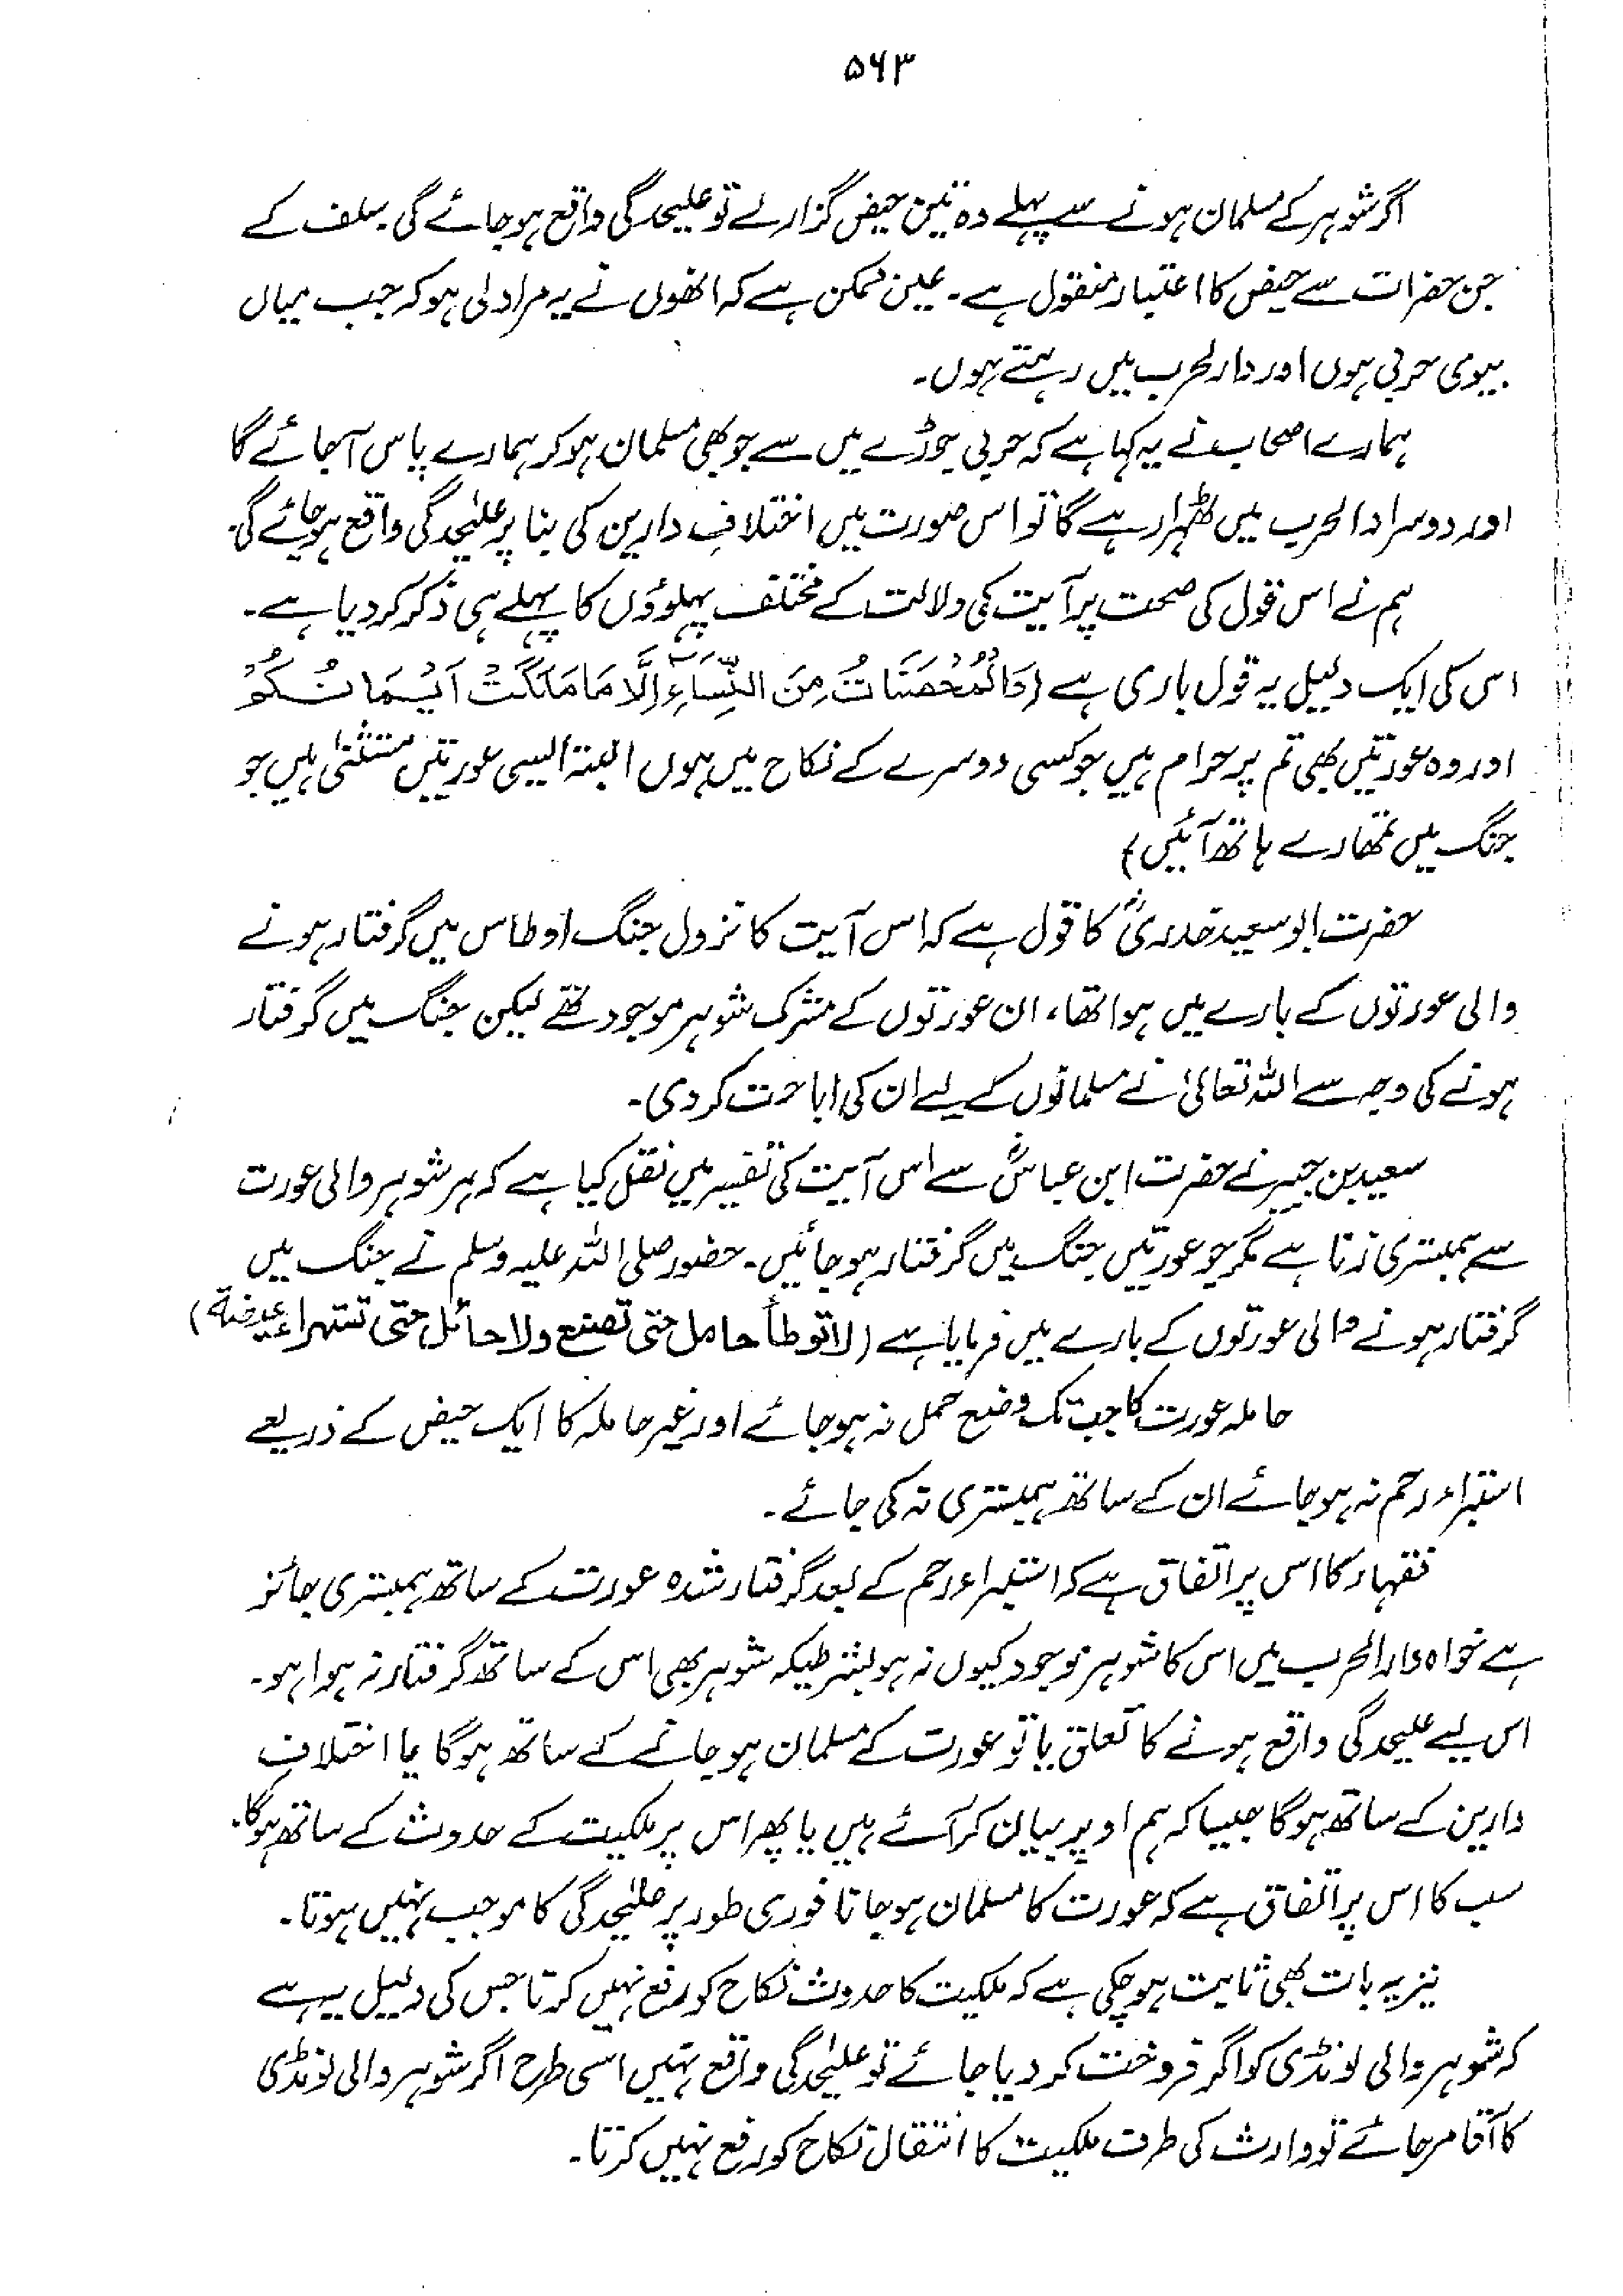 ۵۶۳
اگر شوہر کے مسلمان ہونے سے پہلے وہ تین حیض گزارلے تو علیحدگی واقع ہوجائے گی۔ سلف کے
جن حضرات سے حیض کا اعتبار منقول ہے۔ عین ممکن ہے کہ انھوں نے یہ مراد لی ہو کہ جب میاں
بیوی حربی ہوں اور دارلحرب میں رہتے ہوں۔
ہمارے اصحاب نے یہ کہا ہے کہ حربی جوڑے میں سے جو بھی مسلمان ہو کر ہمارے پاس آجائے گا
اور دوسرا دالحرب میں ٹھہرا رہے گا تو اس صورت میں اختلافِ دارین کی بنا پر علیٰحدگی واقع ہوجائے گی۔
ہم نے اس قول کی صحت پر آیت کی دلالت کے مختلف پہلوؤں کا پہلے ہی ذکر کر دیا ہے۔
اس کی ایک دلیل یہ قول باری ہے (وَالْمُحْصَنَاتُ مِنَ النِّسَاءِ اِلَّا مَا مَلَكَتْ اَيْمَانُكُمْ
اور وہ عورتیں بھی تم پر حرام ہیں جو کسی دوسرے کے نکاح میں ہوں البتہ ایسی عورتیں مستثنیٰ ہیں جو
جنگ میں تمھارے ہاتھ آئیں)
حضرت ابو سعید خدریؓ کا قول ہے کہ اس آیت کا نزول جنگ اوطاس میں گرفتار ہونے
والی عورتوں کے بارے میں ہوا تھا، ان عورتوں کے مشرک شوہر موجود تھے لیکن جنگ میں گرفتار
ہونے کی وجہ سے اللہ تعالیٰ نے مسلمانوں کے لیے ان کی اباحت کر دی۔
سعید بن جبیر نے حضرت ابن عباسؓ سے اس آیت کی تفسیر میں نقل کیا ہے کہ ہر شوہر والی عورت
سے ہمبستری زنا ہے مگر جو عورتیں جنگ میں گرفتار ہو جائیں۔ حضور صلی اللہ علیہ وسلم نے جنگ میں
گرفتار ہونے والی عورتوں کے بارے میں فرمایا ہے (لا توطأ حامل حتی تضع ولا حائل حتی تستبراء بحیضۃ)
حاملہ عورت کا جب تک وضع حمل نہ ہوجائے اور غیر حاملہ کا ایک حیض کے ذریعے
استبراء رحم نہ ہوجائے ان کے ساتھ ہمبستری نہ کی جائے۔
فقہاء کا اس پر اتفاق ہے کہ استبراء رحم کے بعد گرفتار شدہ عورت کے ساتھ ہمبستری جائز
ہے خواہ دارالحرب میں اس کا شوہر موجود کیوں نہ ہو بشرطیکہ شوہر بھی اس کے ساتھ گرفتار نہ ہوا ہو۔
اس لیے علیحدگی واقع ہونے کا تعلق یا تو عورت کے مسلمان ہوجانے کے ساتھ ہوگا یا اختلافِ
دارین کے ساتھ ہوگا جیسا کہ ہم اوپر بیان کر آئے ہیں یا پھر اس پر ملکیت کے حدوث کے ساتھ ہوگا۔
سب کا اس پر اتفاق ہے کہ عورت کا مسلمان ہوجانا فوری طور پر علیٰحدگی کا موجب نہیں ہوتا۔
نیز یہ بات بھی ثابت ہوچکی ہے کہ ملکیت کا حدوث نکاح کو رفع نہیں کرتا جس کی دلیل یہ ہے
کہ شوہر والی لونڈی کو اگر فروخت کر دیا جائے تو علیٰحدگی واقع نہیں اسی طرح اگر شوہر والی لونڈی
کا آقا مر جائے تو وارث کی طرف ملکیت کا انتقال نکاح کو رفع نہیں کرتا۔